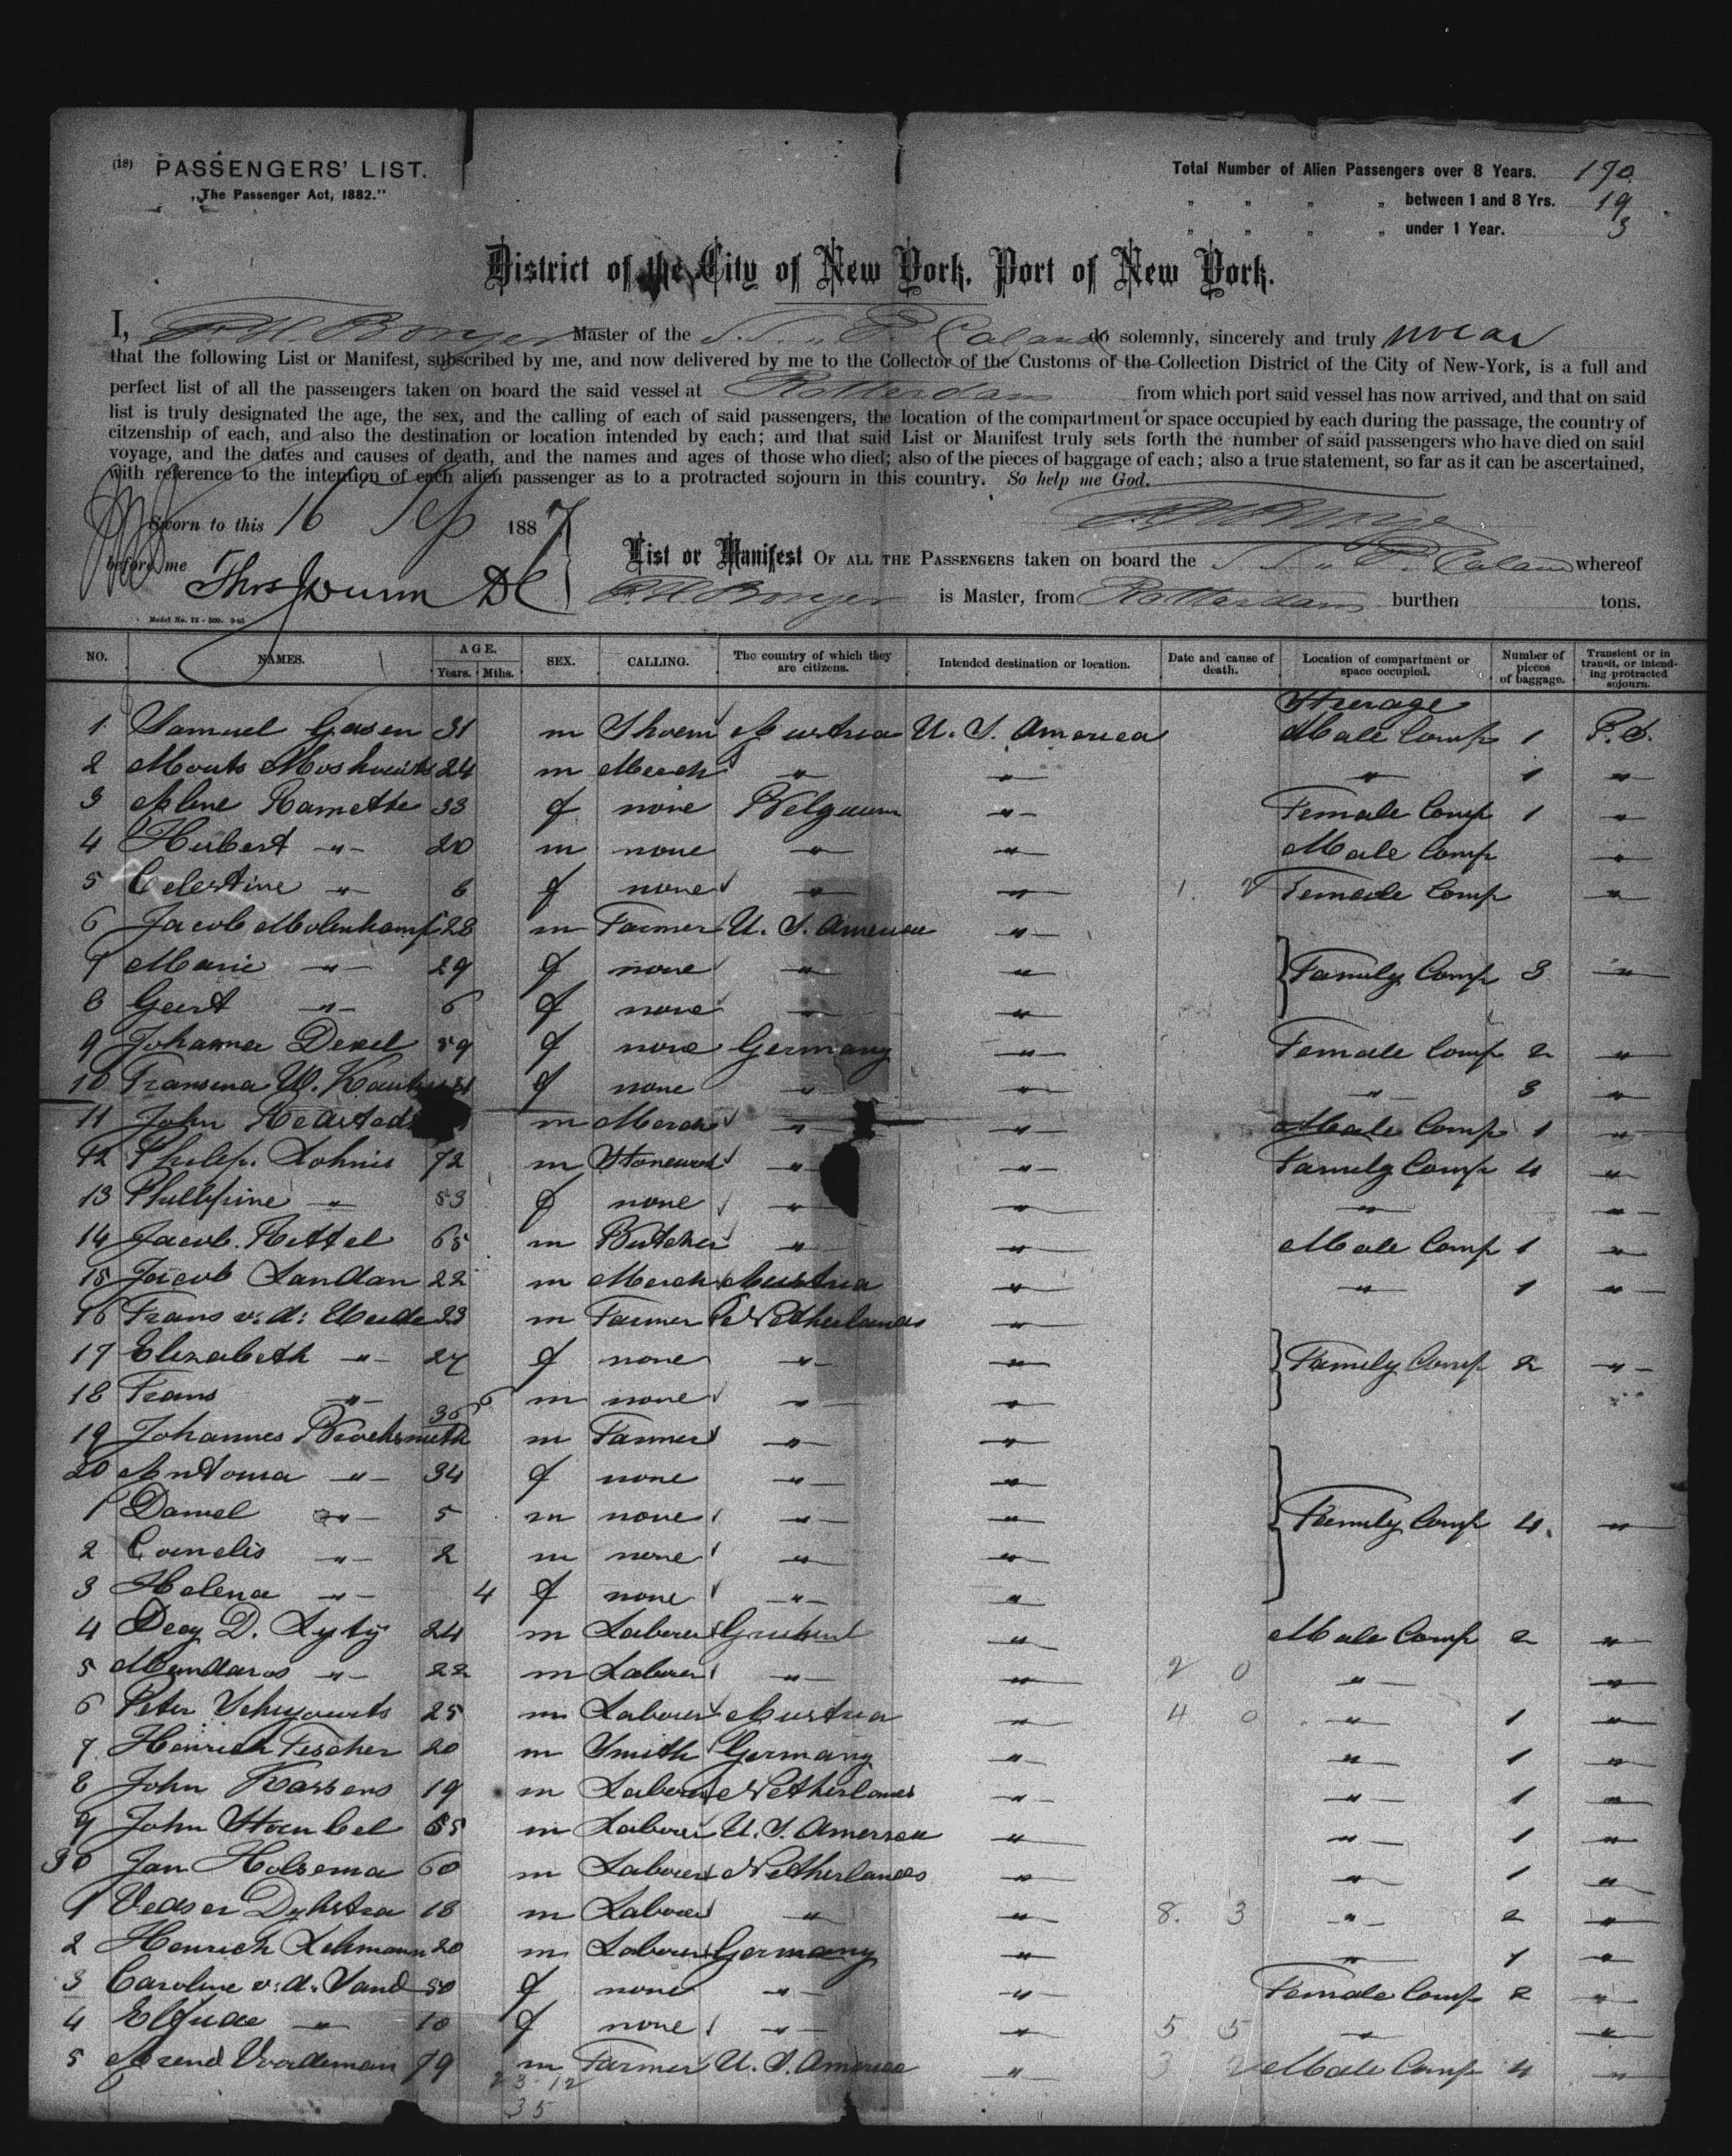 (18) PASSENGERS' LIST.
„The Passenger Act, 1882."
Total Number of Alien Passengers over 8 Years. 170
„ „ „ „ between 1 and 8 Yrs. 19
„ „ „ „ under 1 Year. 3
District of the City of New York, Port of New York.
I, Master of the S.S. „ P. Caland do solemnly, sincerely and truly swear
that the following List or Manifest, subscribed by me, and now delivered by me to the Collector of the Customs of the Collection District of the City of New-York, is a full and
perfect list of all the passengers taken on board the said vessel at Rotterdam from which port said vessel has now arrived, and that on said
list is truly designated the age, the sex, and the calling of each of said passengers, the location of the compartment or space occupied by each during the passage, the country of
citzenship of each, and also the destination or location intended by each; and that said List or Manifest truly sets forth the number of said passengers who have died on said
voyage, and the dates and causes of death, and the names and ages of those who died; also of the pieces of baggage of each; also a true statement, so far as it can be ascertained,
with reference to the intention of each alien passenger as to a protracted sojourn in this country. So help me God.
Sworn to this 16 Sep 1887
before me Thos Dunn DC
List or Manifest OF ALL THE PASSENGERS taken on board the S.S. „ P. Caland whereof
is Master, from Rotterdam burthen tons.
Model No. 72 - 500.
NO. NAMES. AGE. Years. Mths. SEX. CALLING. The country of which they are citizens. Intended destination or location. Date and cause of death. Location of compartment or space occupied. Number of pieces of baggage. Transient or in transit, or intending protracted sojourn.
Steerage
1 Samuel Gasen 31 m Shoem Austria U. S. America Male Comp 1 P.S.
2 Mouts Moskouits 24 m Merch " " " 1 "
3 Aline Ramette 33 f none Belgium " Female Comp 1 "
4 Hubert " 20 m none " " Male Comp "
5 Celestine " 6 f none " " 1. Female Comp "
6 Jacob Molenkamp 28 m Farmer U. S. America "
7 Marie " 29 f none " " Family Comp 3 "
8 Geert " 6 f none " "
9 Johanna Dexel 59 f none Germany " Female Comp 2 "
10 Fransina W. f none " " " 3 "
11 John m Merch " " Male Comp 1 "
12 Philip. Lohnis 72 m Stonework " " Family Comp 4 "
13 Phillipine " 53 f none " " " "
14 Jacob. Rettel 65 m Butcher " " Male Comp 1 "
15 Jacob Landan 22 m Merch Austria " " 1 "
16 Frans v: d: 23 m Farmer Netherlands "
17 Elizabeth " 24 f none " " Family Comp 2 "
18 Frans " 6 m none " "
19 Johannes 36 m Farmer " "
20 Antonia " 34 f none " "
1 Daniel " 5 m none " " Family Comp 4. "
2 Cornelis " 2 m none " "
3 Helena " 4 f none " "
4 D. Lyty 24 m Laborer " Male Comp 2 "
5 " 22 m Laborer " " 2 0 " "
6 Peter 25 m Laborer Austria " 4 0 " 1 "
7 Heinrich Fischer 20 m Smith Germany " " 1 "
8 John Kassens 19 m Laborer Netherlands " " 1 "
9 John Strubel 55 m Laborer U. S. America " " 1 "
30 Jan Holsema 60 m Laborer Netherlands " " 1 "
1 Dykstra 18 m Laborer " " 8. 3 " 2 "
2 Henrich Lehmann 20 m Laborer Germany " " 1 "
3 Caroline v: d: Sand 50 f none " " Female Comp 2 "
4 " 10 f none " " 5 5 " "
5 Arend Voordeman 79 m Farmer U. S. America " 3 Male Comp 4 "
23-12
35